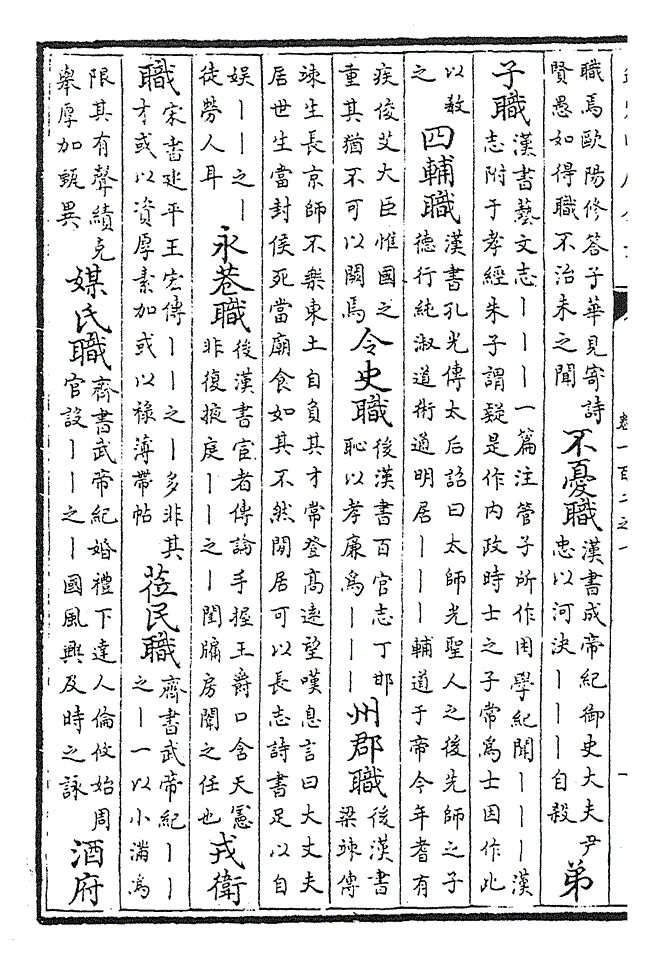 職焉歐陽修答子華見寄詩
賢愚如得職不治未之聞
不憂職
漢書成帝紀御史大夫尹
忠以河決｜｜｜自殺
弟
子職
漢書藝文志｜｜｜一篇注管子所作困學紀聞｜｜｜漢
志附于孝經朱子謂疑是作内政時士之子常為士因作此
以教
之
四輔職
漢書孔光傳太后詔曰太師光聖人之後先師之子
德行純淑道術通明居｜｜｜輔道于帝今年耆有
疾俊艾大臣惟國之
重其猶不可以闕焉
令史職
後漢書百官志丁邯
恥以孝廉為｜｜｜
州郡職
後漢書
梁竦傳
竦生長京師不樂東土自負其才常登髙逺望嘆息言曰大丈夫
居世生當封侯死當廟食如其不然閒居可以長志詩書足以自
娱｜｜之｜
徒勞人耳
永巷職
後漢書宦者傳論手握王爵口含天憲
非復掖庭｜｜之｜閨牖房闥之任也
戎衛
職
宋書建平王宏傳｜｜之｜多非其
才或以資厚素加或以祿薄帶帖
莅民職
齊書武帝紀｜｜
之｜一以小滿為
限其有聲績克
舉厚加甄異
媒氏職
齊書武帝紀婚禮下達人倫攸始周
官設｜｜之｜國風興及時之詠
酒府